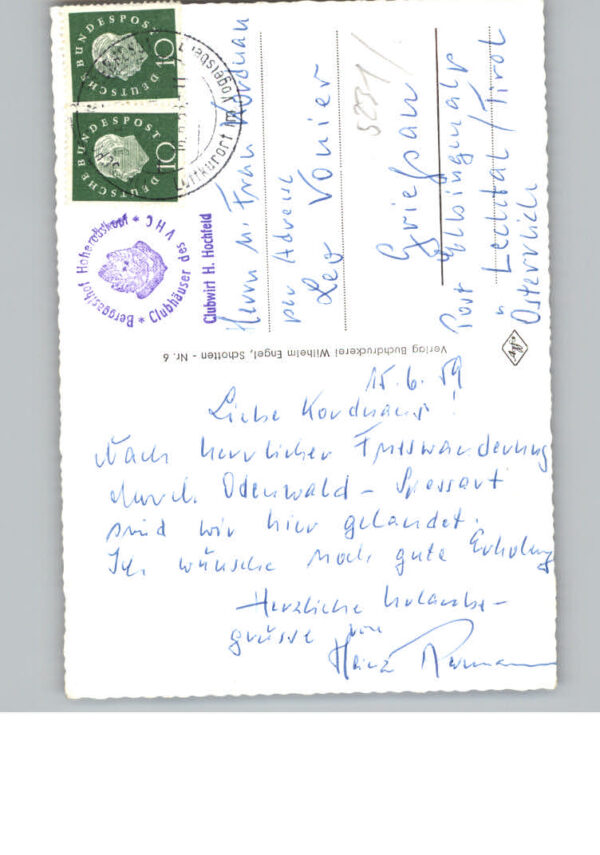 15. 6. 59
Liebe Korduans!
Nach herrlicher Fusswanderung
durch Odenwald - Spessart
sind wir hier gelandet.
Ich wünsche noch gute Erholung
Herzliche Urlaubs-
grüsse von
Heinz
Verlag Buchdruckerei Wilhelm Engel, Schotten - Nr. 6
Herrn u. Frau Korduan
per Adresse
Leo Vonier
Griesau
Post Elbigenalp
Lechtal/Tirol
Österreich
5231/
DEUTSCHE BUNDESPOST
10
DEUTSCHE BUNDESPOST
10
Luftkurort im Vogelsberg
Berggasthof Hoherodskopf * Clubhäuser des VHC *
Clubwirt H. Hochfeld